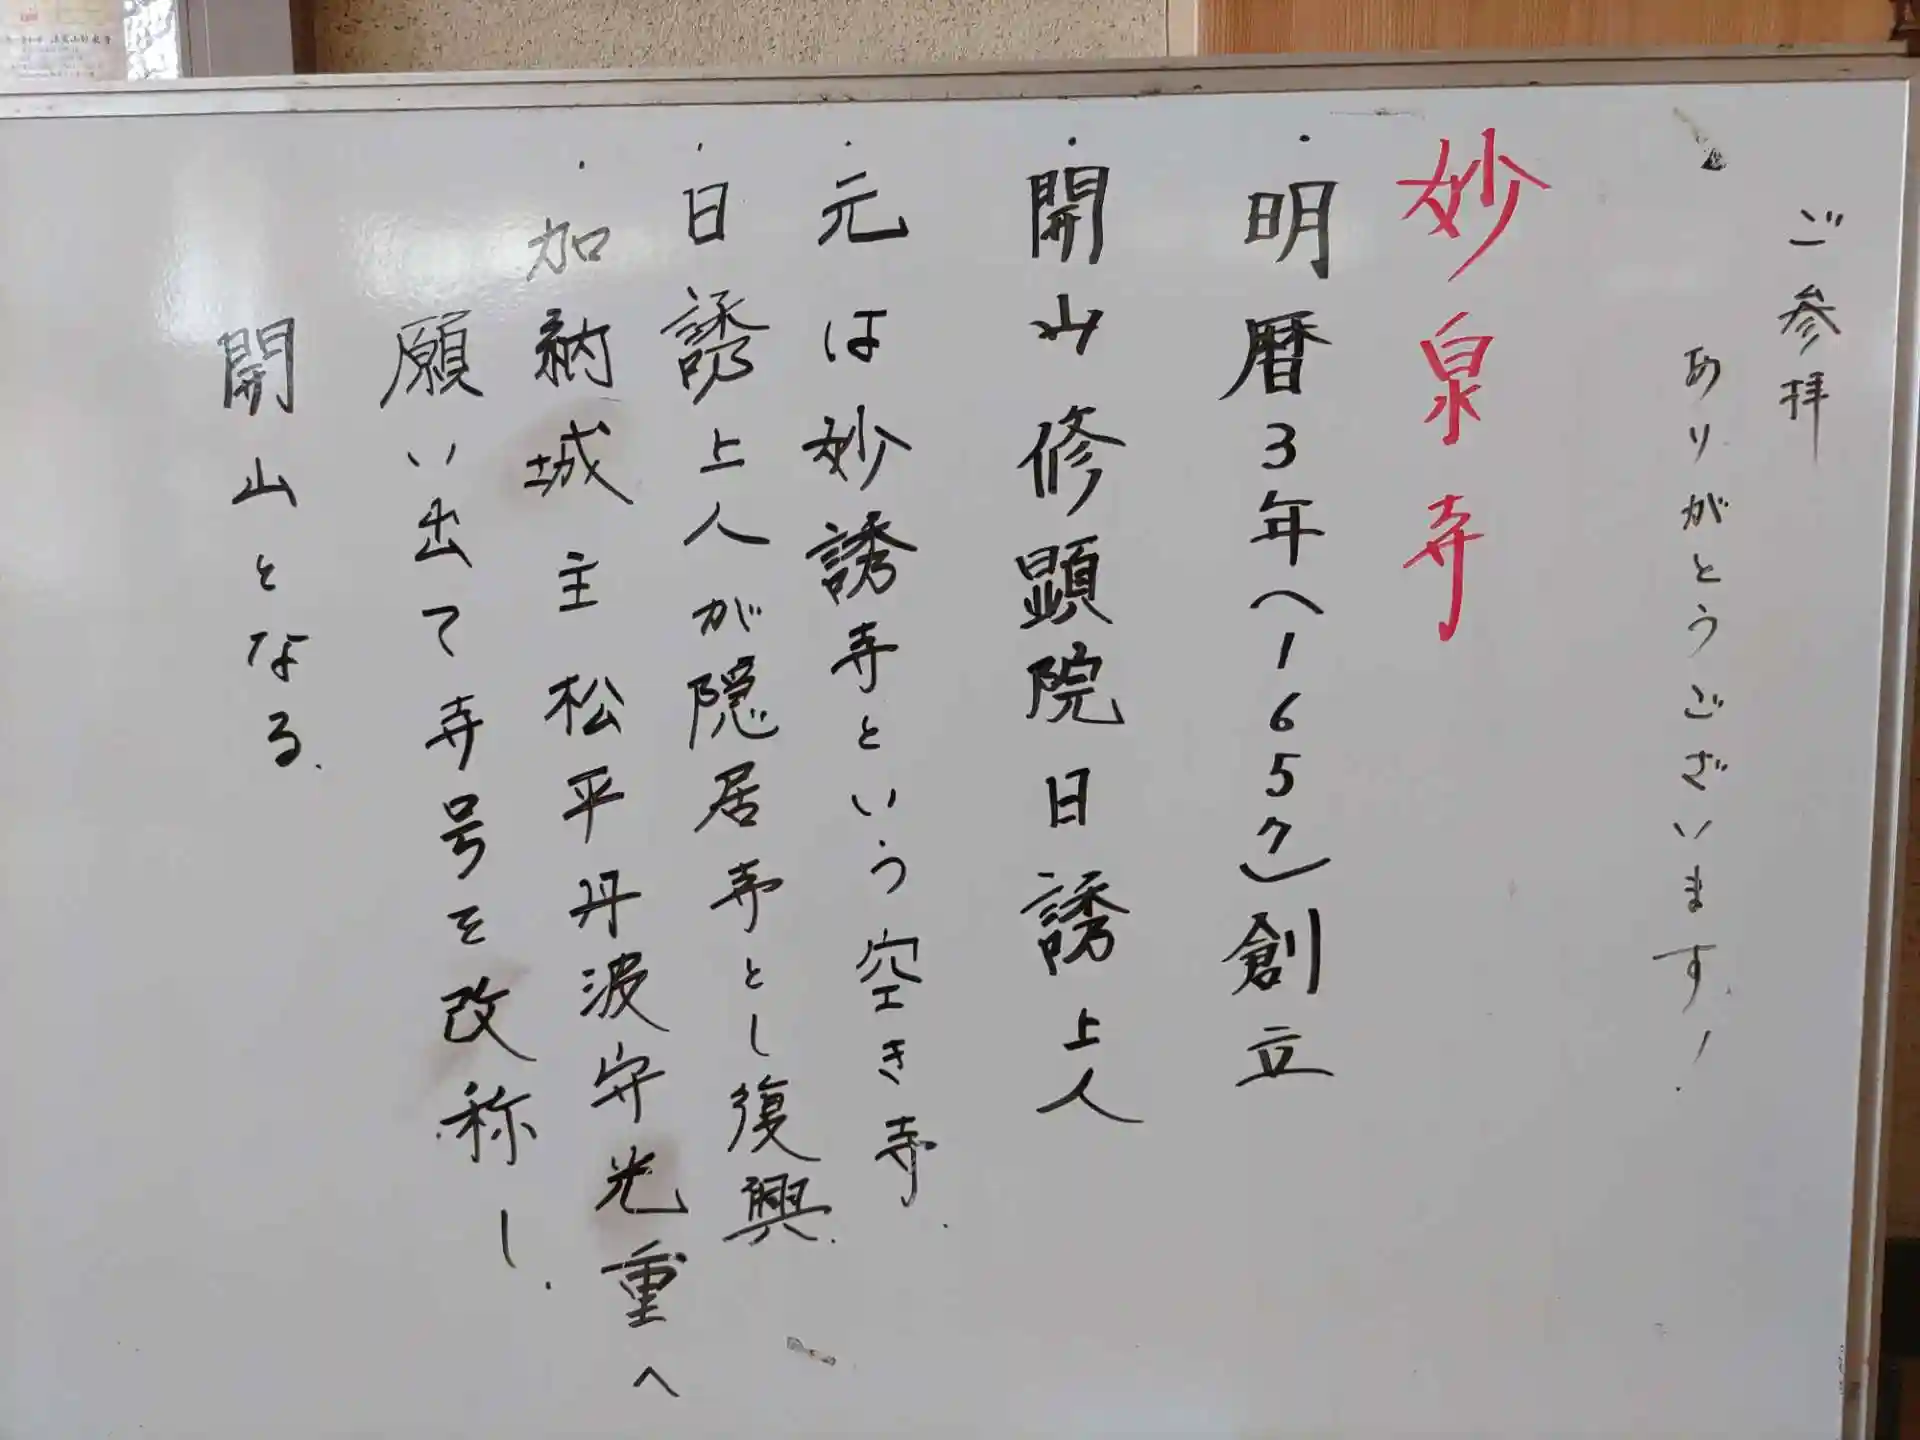 ご参拝
ありがとうございます!
妙泉寺
・明暦3年(1657)創立
・開山修顕院日誘上人
・元は妙誘寺という空き寺.
・日誘上人が隠居寺とし復興.
・加納城主松平丹波守光重へ
願い出て寺号を改称し.
開山となる.